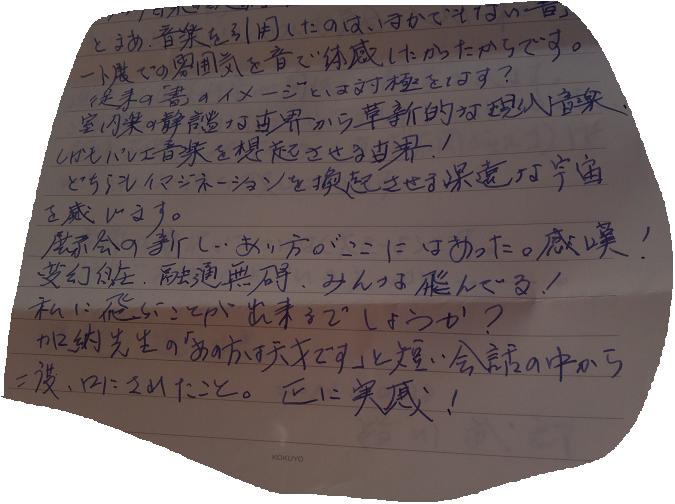 とまあ、音楽を引用したのは、いまかでもない書ア
ート展での雰囲気を音で体感したかったからです。
従来の書のイメージとは対極をなす?
室内楽の静謐な世界から革新的な現代音楽、
しかもバレエ音楽を想起させる世界!
どちらもイマジネーションを喚起させる深遠な宇宙
を感じます。
展示会の新しいあり方がここにはあった。感嘆!
変幻自在、融通無碍、みんな飛んでる!
私に飛ぶことが出来るでしょうか?
加納先生の「あの方は天才です」と短い会話の中から
二度、口にされたこと。正に実感!
KOKUYO